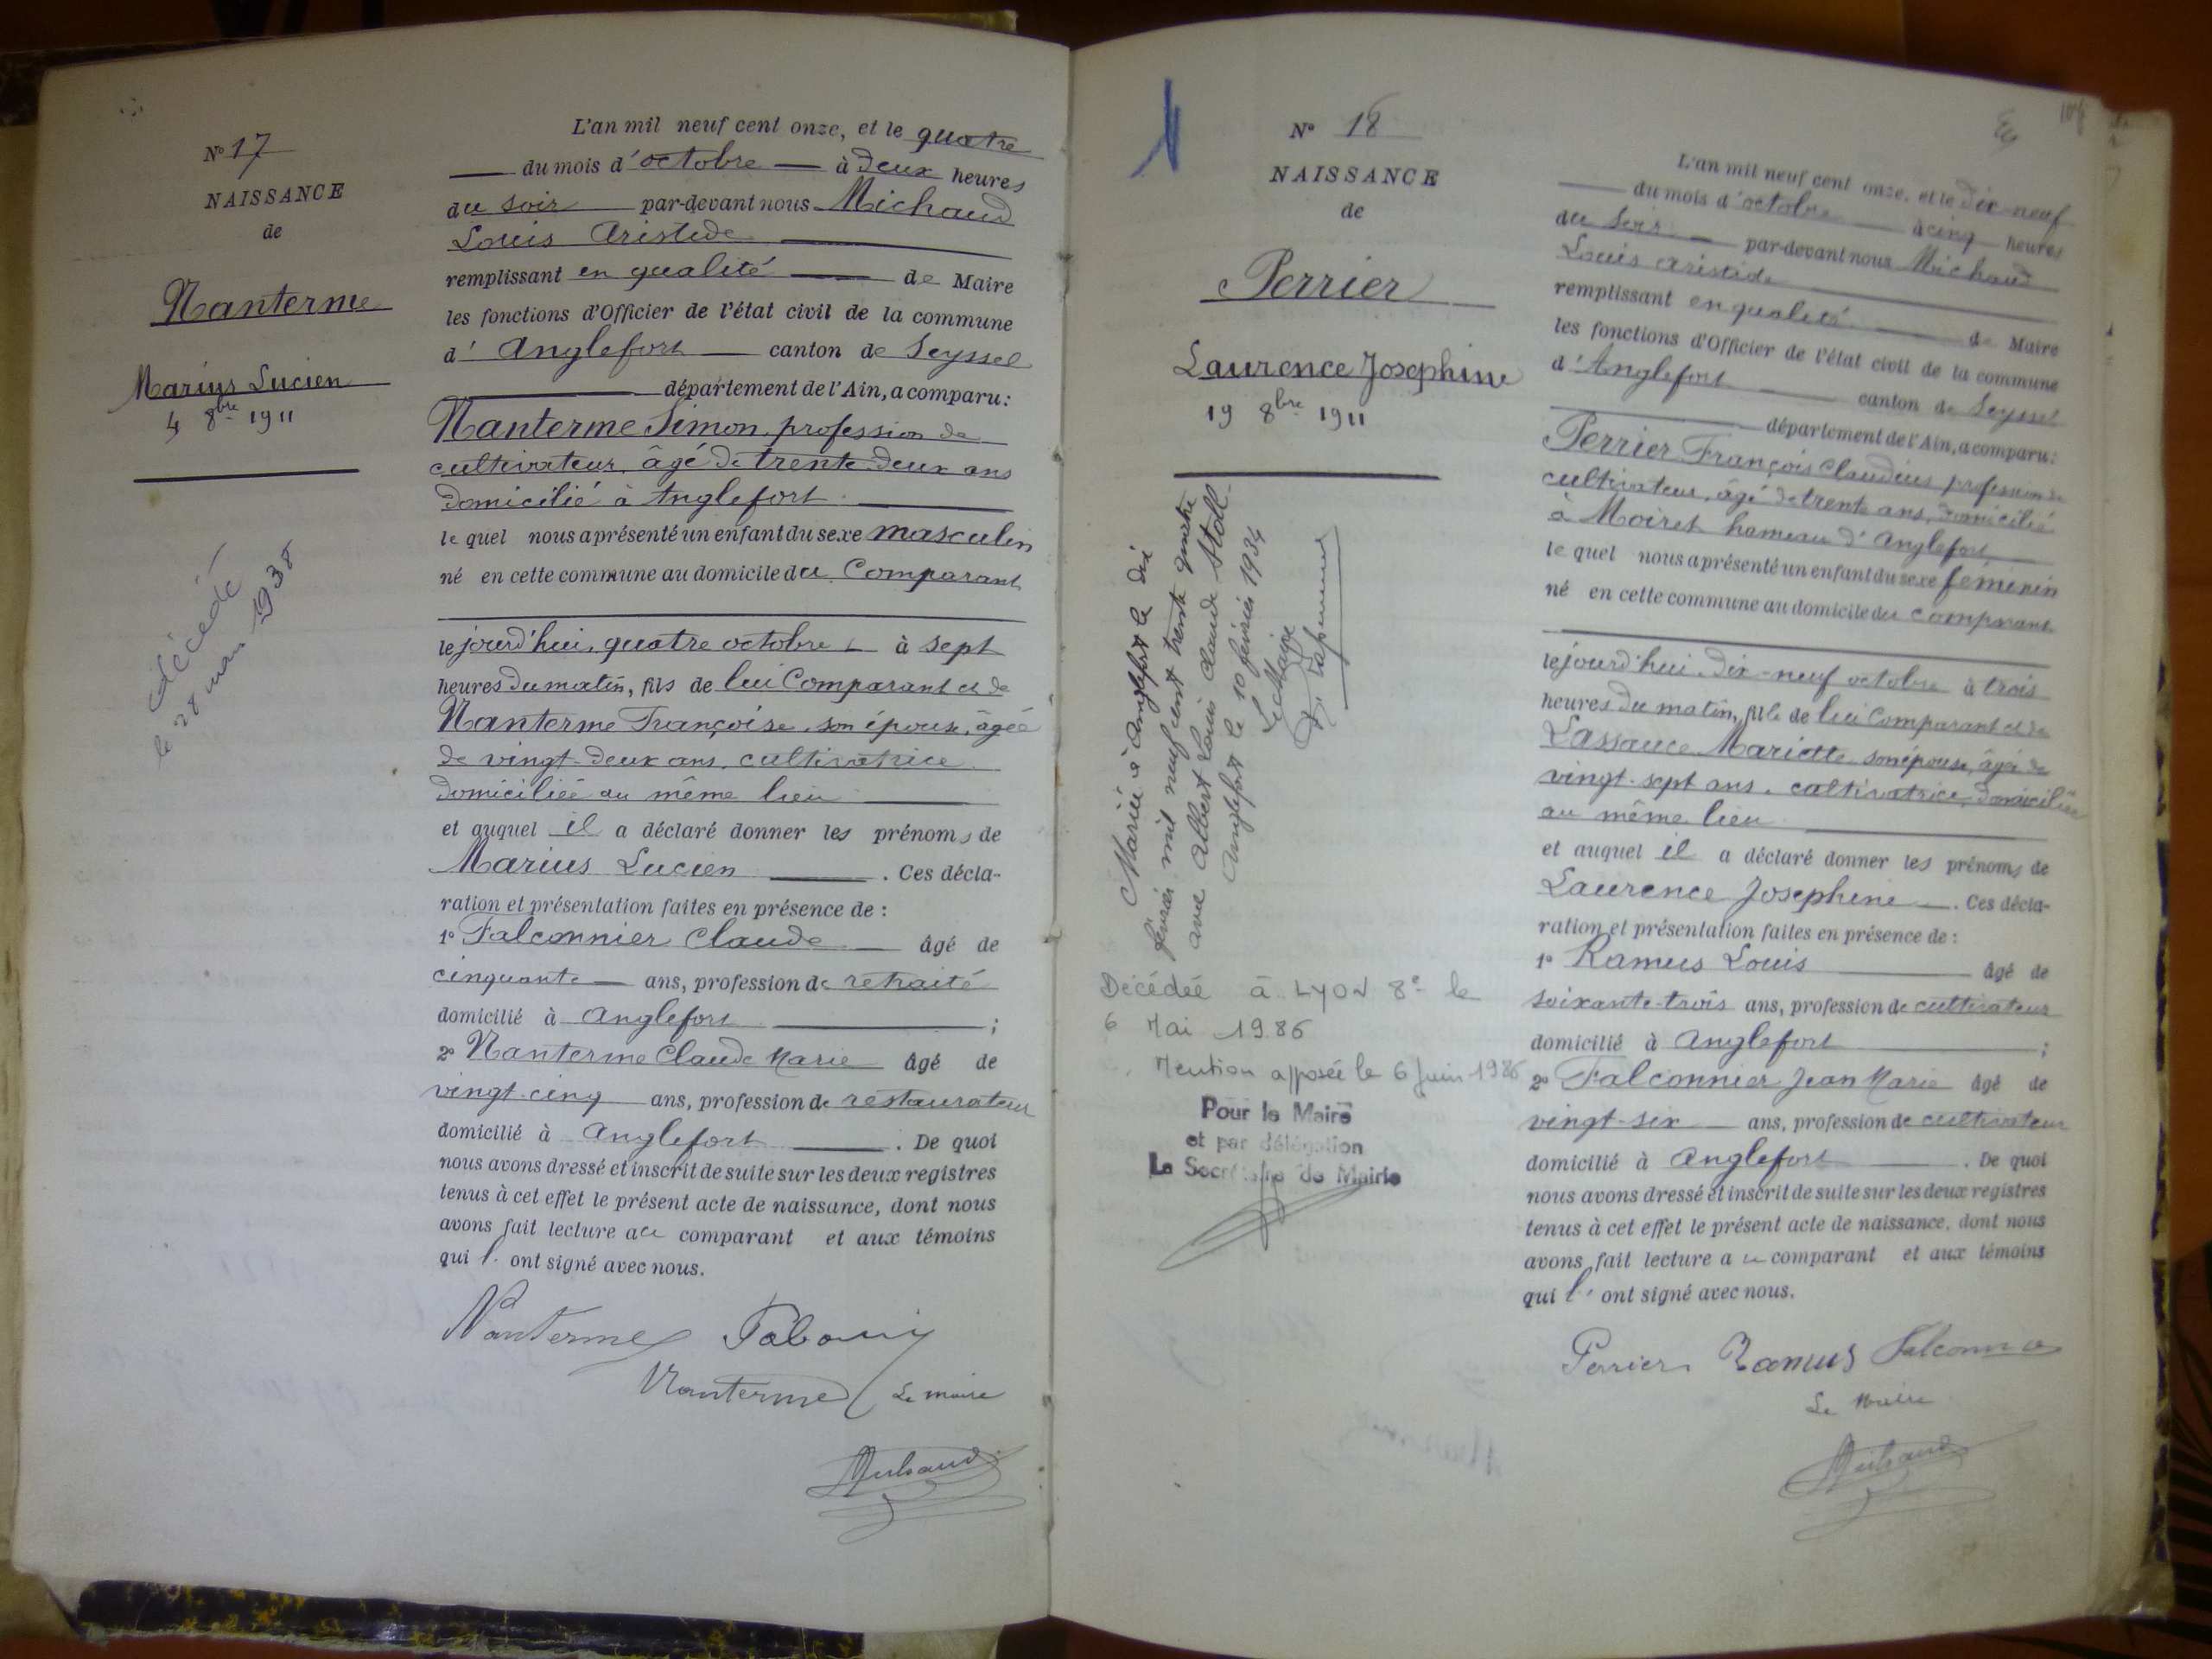 Nº 17
NAISSANCE
de
Nanterme
Marius Lucien
4 8bre 1911
décédé
le 28 mars 1938
L'an mil neuf cent onze, et le quatre
du mois d'octobre à deux heures
du soir par-devant nous Michaud
Louis Aristide
remplissant en qualité de Maire
les fonctions d'Officier de l'état civil de la commune
d'Anglefort canton de Seyssel
département de l'Ain, a comparu :
Nanterme Simon profession de
cultivateur, âgé de trente-deux ans
domicilié à Anglefort
lequel nous a présenté un enfant du sexe masculin
né en cette commune au domicile du Comparant
le jourd'hui, quatre octobre à sept
heures du matin, fils de lui Comparant et de
Nanterme Françoise, son épouse, âgée
de vingt-deux ans, cultivatrice
domiciliée au même lieu
et auquel il a déclaré donner les prénoms de
Marius Lucien . Ces décla-
ration et présentation faites en présence de :
1º Falconnier Claude âgé de
cinquante ans, profession de retraité
domicilié à Anglefort ;
2º Nanterme Claude Marie âgé de
vingt-cinq ans, profession de restaurateur
domicilié à Anglefort . De quoi
nous avons dressé et inscrit de suite sur les deux registres
tenus à cet effet le présent acte de naissance, dont nous
avons fait lecture au comparant et aux témoins
qui l' ont signé avec nous.
Nanterme
Nanterme Le maire
Michaud
Nº 18
NAISSANCE
de
Perrier
Laurence Josephine
19 8bre 1911
Mariée à Anglefort le dix
février mil neuf cent trente quatre
avec Albert Louis Claude Stoll.
Anglefort le 10 février 1934
Le Maire
Décédée à LYON 8e le
6 Mai 1986
Mention apposée le 6 Juin 1986
Pour le Maire
et par délégation
Le Secrétaire de Mairie
L'an mil neuf cent onze, et le dix-neuf
du mois d'octobre à cinq heures
du soir par-devant nous Michaud
Louis Aristide
remplissant en qualité de Maire
les fonctions d'Officier de l'état civil de la commune
d'Anglefort canton de Seyssel
département de l'Ain, a comparu :
Perrier François Claudius profession de
cultivateur, âgé de trente ans, domicilié
à Moiret hameau d'Anglefort
lequel nous a présenté un enfant du sexe féminin
né en cette commune au domicile du comparant
le jourd'hui, dix-neuf octobre à trois
heures du matin, fille de lui Comparant et de
Lassauce Mariette son épouse, âgée de
vingt-sept ans, cultivatrice, domiciliée
au même lieu
et auquel il a déclaré donner les prénoms de
Laurence Josephine . Ces décla-
ration et présentation faites en présence de :
1º Ramus Louis âgé de
soixante-trois ans, profession de cultivateur
domicilié à Anglefort ;
2º Falconnier Jean Marie âgé de
vingt-six ans, profession de cultivateur
domicilié à Anglefort . De quoi
nous avons dressé et inscrit de suite sur les deux registres
tenus à cet effet le présent acte de naissance, dont nous
avons fait lecture au comparant et aux témoins
qui l' ont signé avec nous.
Perrier Ramus Falconnier
Le Maire
Michaud